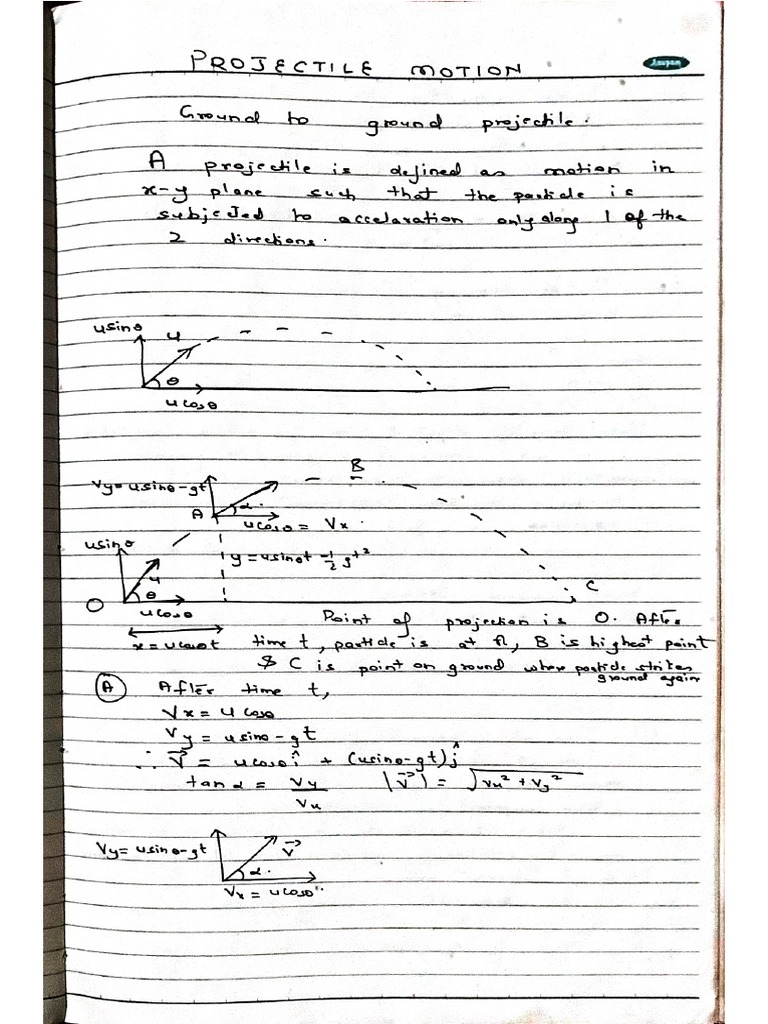 PROJECTILE MOTION
Anupam
Ground to ground projectile.
A projectile is defined as motion in
x-y plane such that the particle is
subjected to accelaration only along 1 of the
2 directions.
usinθ u
θ
ucosθ
B
Vy=usinθ-gt
α.
A
ucosθ = Vx.
usinθ
y=usinθt-1/2gt²
u
θ
C
O
ucosθ
Point of projection is O. After
x=ucosθt time t, particle is at A, B is highest point
& C is point on ground where particle strikes
ground again
A After time t,
Vx=ucosθ
Vy=usinθ-gt
∴ V⃗ = ucosθî + (usinθ-gt)ĵ
tanα = Vy/Vx |V⃗| = √Vx²+Vy²
Vy=usinθ-gt V⃗
α.
Vx=ucosθ